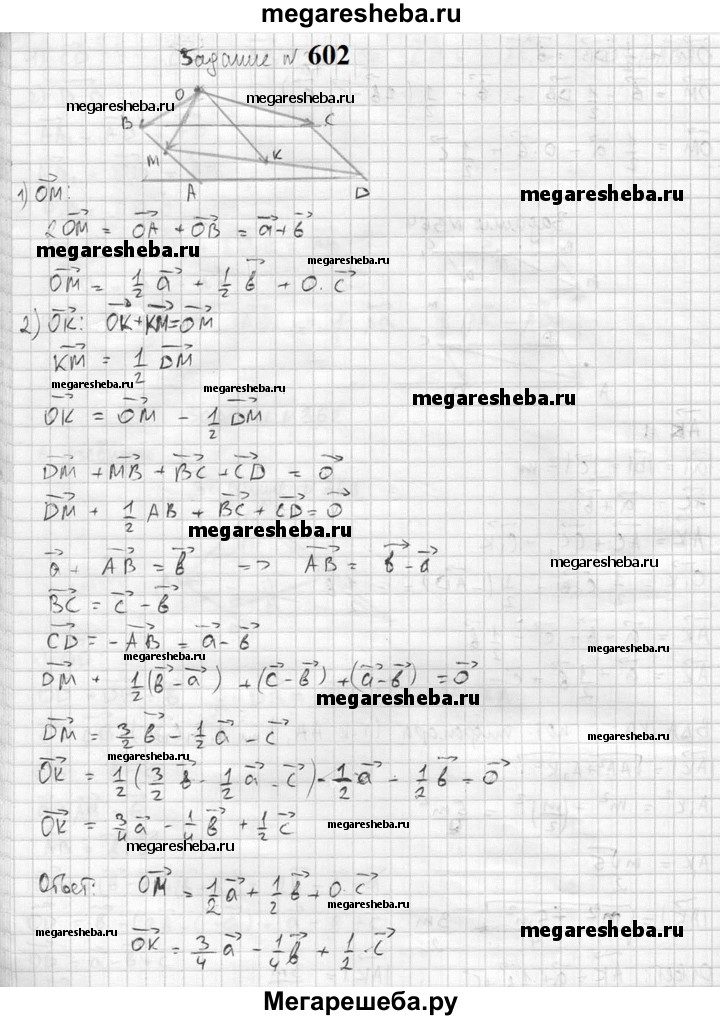 megaresheba.ru
Задание № 602
megaresheba.ru
megaresheba.ru
O
B
C
M
K
A
D
megaresheba.ru
1) OM⃗:
2 OM⃗ = OA⃗ + OB⃗ = a⃗ + b⃗
megaresheba.ru
megaresheba.ru
OM⃗ = 1/2 a⃗ + 1/2 b⃗ + 0·c⃗
2) OK⃗: OK⃗ + KM⃗ = OM⃗
KM⃗ = 1/2 DM⃗
megaresheba.ru
megaresheba.ru
megaresheba.ru
OK⃗ = OM⃗ - 1/2 DM⃗
DM⃗ + MB⃗ + BC⃗ + CD⃗ = 0⃗
DM⃗ + 1/2 AB + BC⃗ + CD⃗ = 0⃗
megaresheba.ru
a⃗ + AB⃗ = b⃗ => AB⃗ = b⃗ - a⃗
megaresheba.ru
BC⃗ = c⃗ - b⃗
CD⃗ = -AB⃗ = a⃗ - b⃗
megaresheba.ru
megaresheba.ru
DM⃗ + 1/2 (b⃗ - a⃗) + (c⃗ - b⃗) + (a⃗ - b⃗) = 0⃗
megaresheba.ru
DM⃗ = 3/2 b⃗ - 1/2 a⃗ - c⃗
megaresheba.ru
megaresheba.ru
OK⃗ = 1/2 (3/2 b⃗ - 1/2 a⃗ - c⃗) - 1/2 a⃗ - 1/2 b⃗ = 0⃗
OK⃗ = 3/4 a⃗ - 1/4 b⃗ + 1/2 c⃗
megaresheba.ru
megaresheba.ru
Ответ: OM⃗ = 1/2 a⃗ + 1/2 b⃗ + 0·c⃗
megaresheba.ru
megaresheba.ru
megaresheba.ru
OK⃗ = 3/4 a⃗ - 1/4 b⃗ + 1/2·c⃗
Мегарешеба.ру